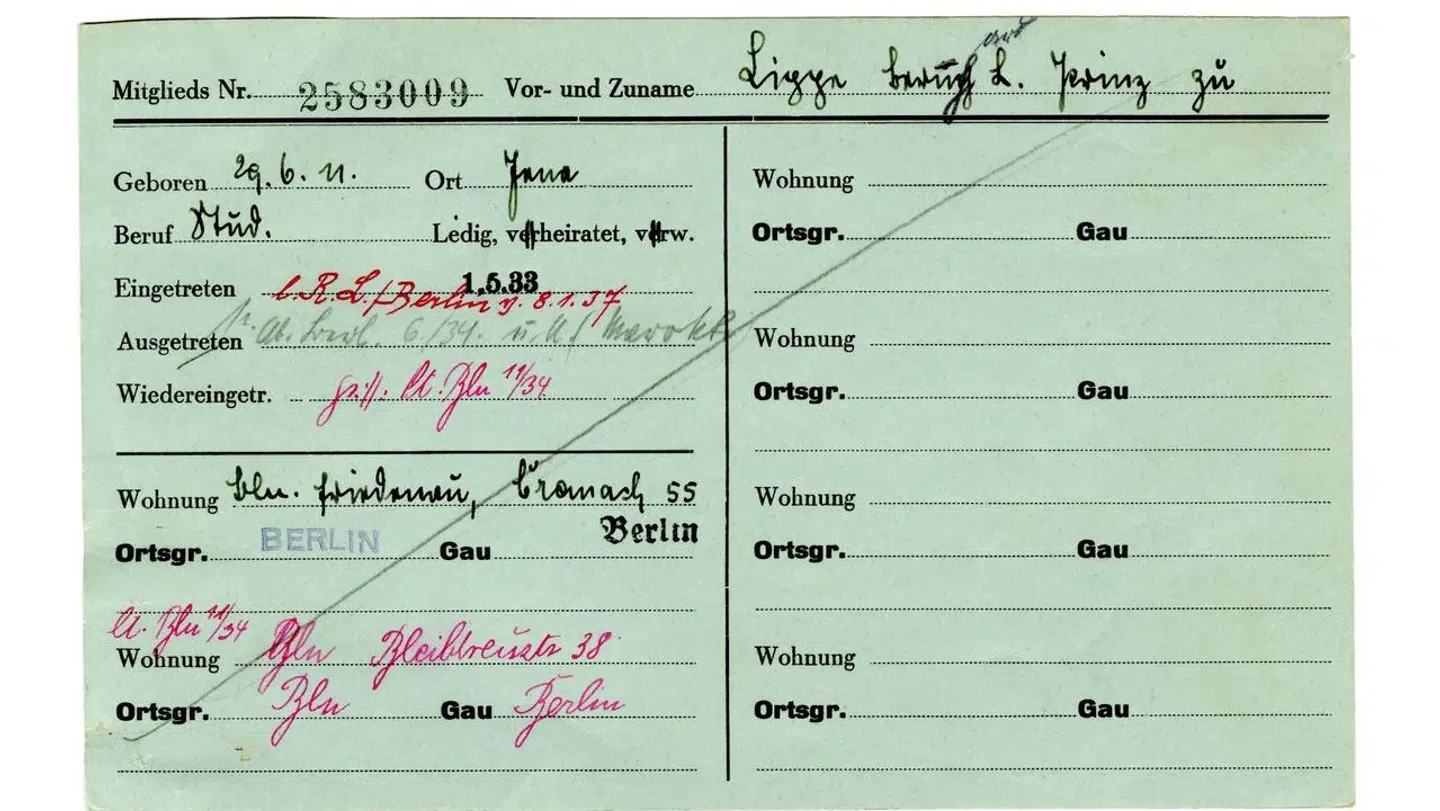 Mitglieds Nr. 2583009 Vor- und Zuname Lippe Bernh. L. Prinz zu
Geboren 29.6.11. Ort Jena
Beruf Stud. Ledig, verheiratet, verw.
Eingetreten 1.5.33
R.L./Berlin v. 8.1.37
Ausgetreten 6/34. u.
Wiedereingetr. lt. Bln 11/34
Wohnung Bln. Friedenau, Cranach 55
Ortsgr. BERLIN Gau Berlin
lt. Bln 11/34
Wohnung Bln Bleibtreustr 38
Ortsgr. Bln Gau Berlin
Wohnung
Ortsgr. Gau
Wohnung
Ortsgr. Gau
Wohnung
Ortsgr. Gau
Wohnung
Ortsgr. Gau